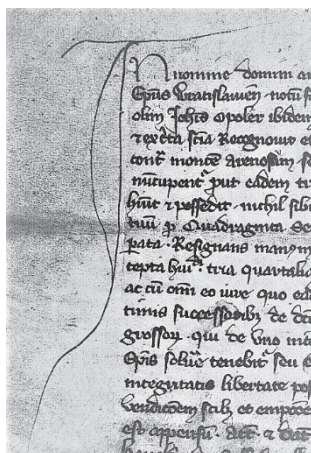 In nomine domini am
Ep̄us Wratislauień notū f
olim Joh̄is Opoler ibidem
⁊ ex c̄ta sc̄ia Recognouit et
cont̄ montē arenosum s
nūcupant̄ put eadem tr
hūit ⁊ possedit nichil sibi
tuū p Quadraginta de
pata Resignans manum
cepta huī tria quartalia
ac cū om̄i eo iure quo ead
timis successoribꝫ de dc̄t
grossoꝝ qui de vno m
Ep̄is soluē tenebit̄ seu
integritatis libertate pos
vendic̄oem scilꝫ et empc̄oe
est appensū Act̄ ⁊ dat